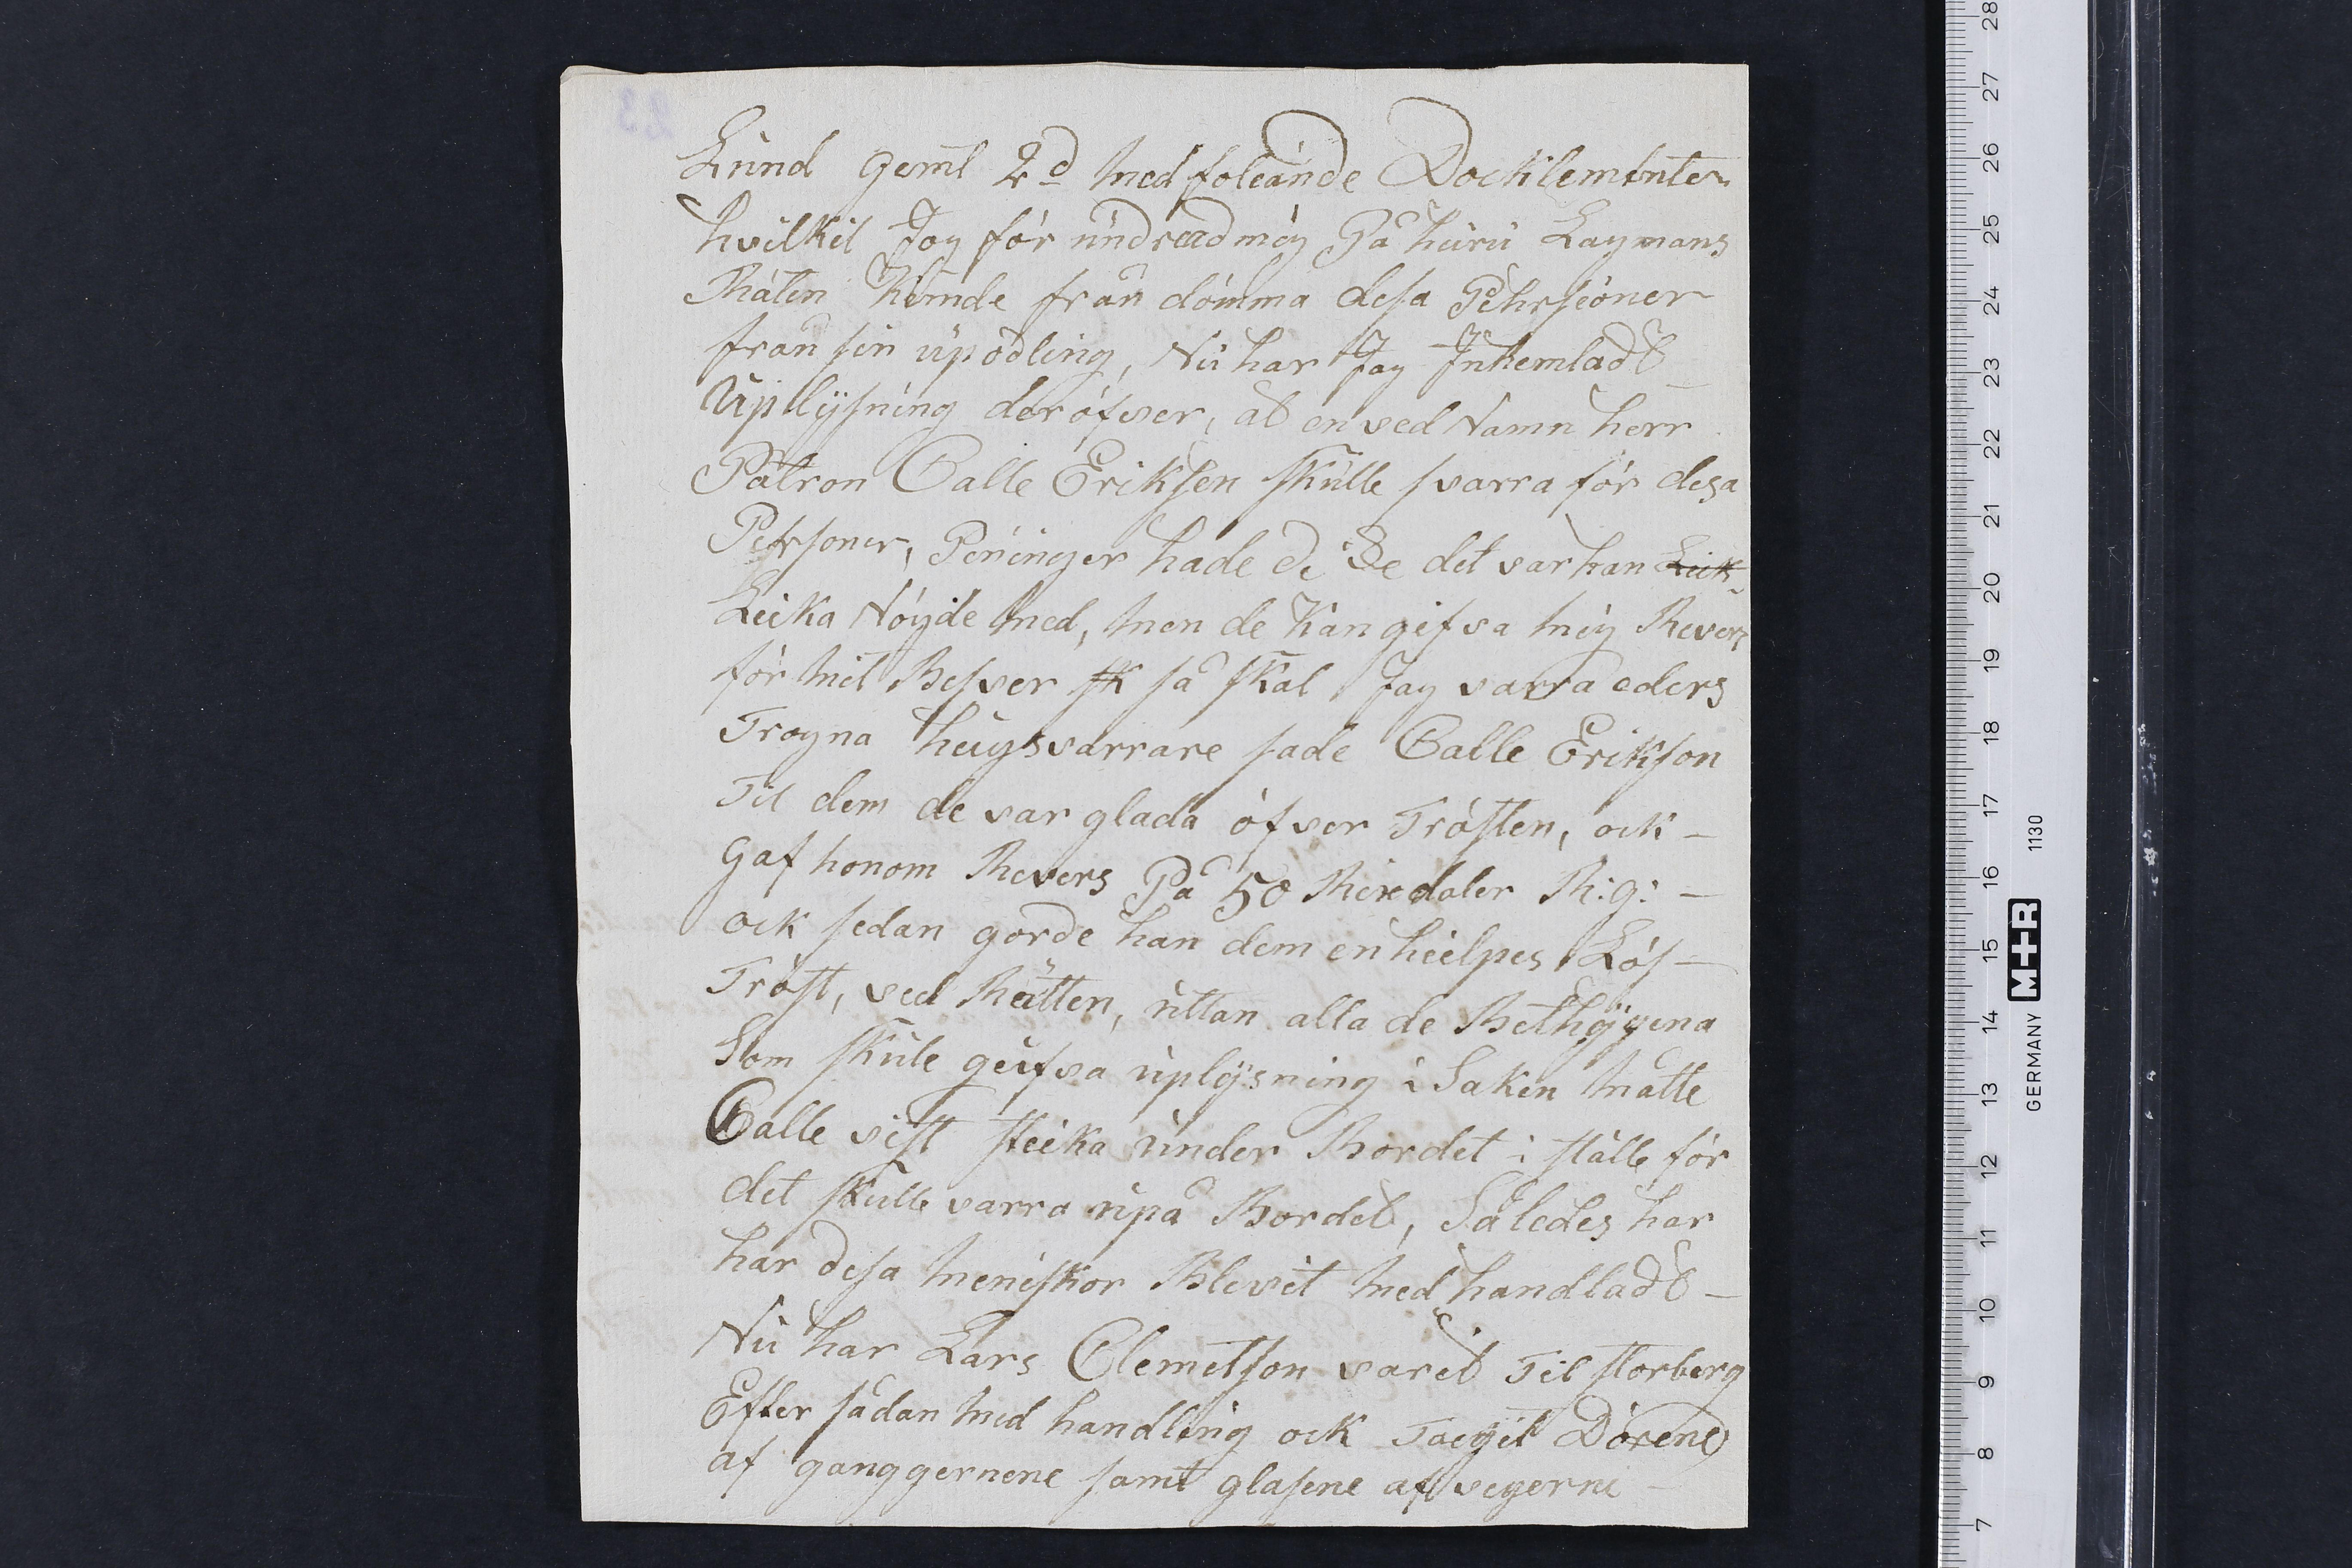 Lund geml 2d Med foleande Dockumenter
hvilkit Jag för undrad mig På huru Laymans
Räten kunde från dömma desa Pehrsoner
från sin upodling, Nu har Jag Inhemladt
Uplysning deröfver, at en ved Namn herr
Patron Calle Eriksen skulle svarra för desa
Pehrsoner, Peninger hade de De det var han Liik
Liika Nöyde med, Men de kan gifva mig Revers
för Mit Besver sk så skal Jag varra eders
Trogna hugsvarrare sade Calle Erikson
Til dem de var glada öfver Trösten, ock
gaf honom Revers På 50 Rixdaler R:g:
ock sedan gorde han dem en hielpes Lös
Tröst, ved Rätten, uttan alla de Bethygena
Som skule geifva uplysning i Saken Måtte
Calle vist steika under Bordet i ställe för
det skulle varra upå Bordet, Således har
har desa Meniskor Blevit Medhandladt
Nu har Lars Clemetson varit Til storberg
Efter sådan Med handling ock Tagit Dörene
af ganggernene samt glasene af vegerne
23
28
27
26
25
24
23
22
21
20
19
18
17
16
15
14
13
12
11
10
9
8
7
GERMANY M+R 1130